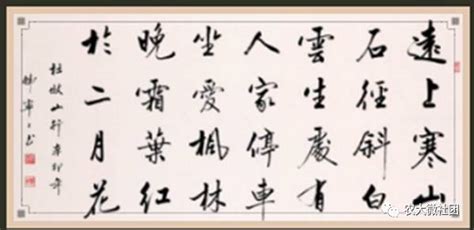 遠上寒山
石徑斜白
雲生處有
人家停車
坐愛楓林
晚霜葉紅
於二月花
杜牧山行辛卯年
农大微社团